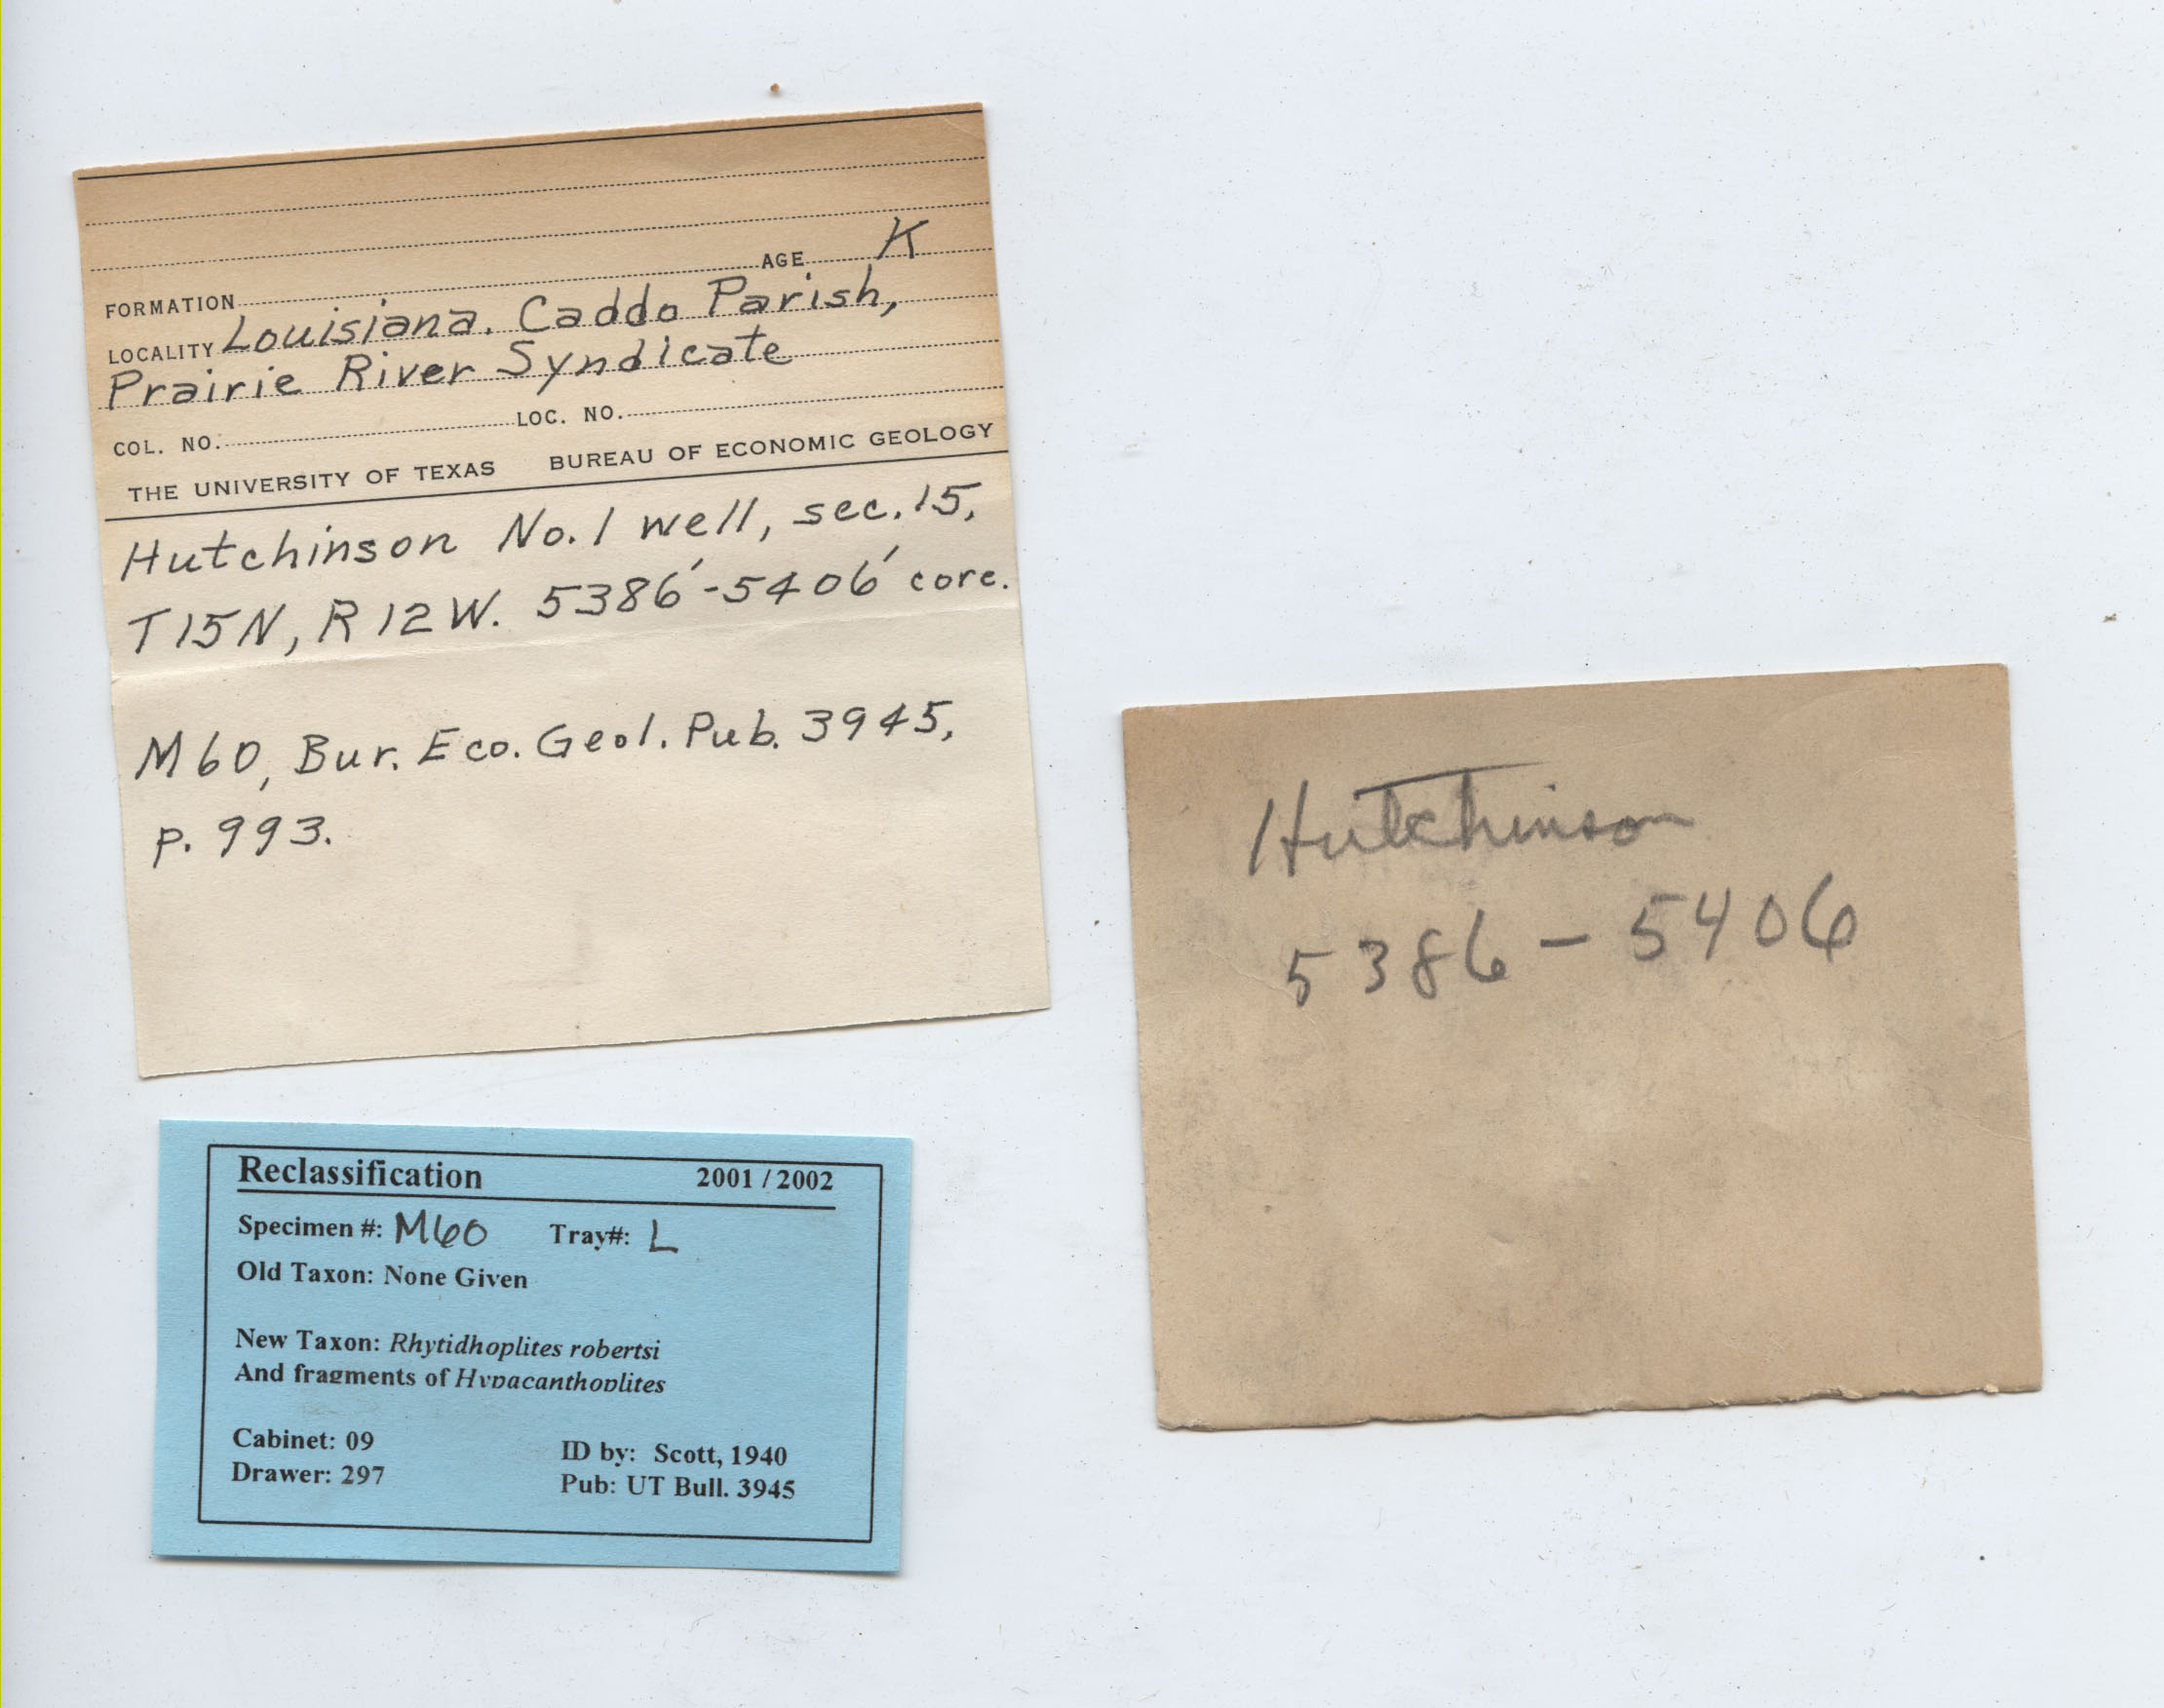 AGE K
FORMATION
LOCALITY Louisiana. Caddo Parish,
Prairie River Syndicate
COL. NO. LOC. NO.
THE UNIVERSITY OF TEXAS BUREAU OF ECONOMIC GEOLOGY
Hutchinson No. 1 well, sec. 15,
T15N, R12W. 5386'-5406' core.
M60, Bur. Eco. Geol. Pub. 3945,
p. 993.
Reclassification 2001 / 2002
Specimen #: M60 Tray#: L
Old Taxon: None Given
New Taxon: Rhytidhoplites robertsi
And fragments of Hypacanthoplites
Cabinet: 09 ID by: Scott, 1940
Drawer: 297 Pub: UT Bull. 3945
Hutchinson
5386 - 5406